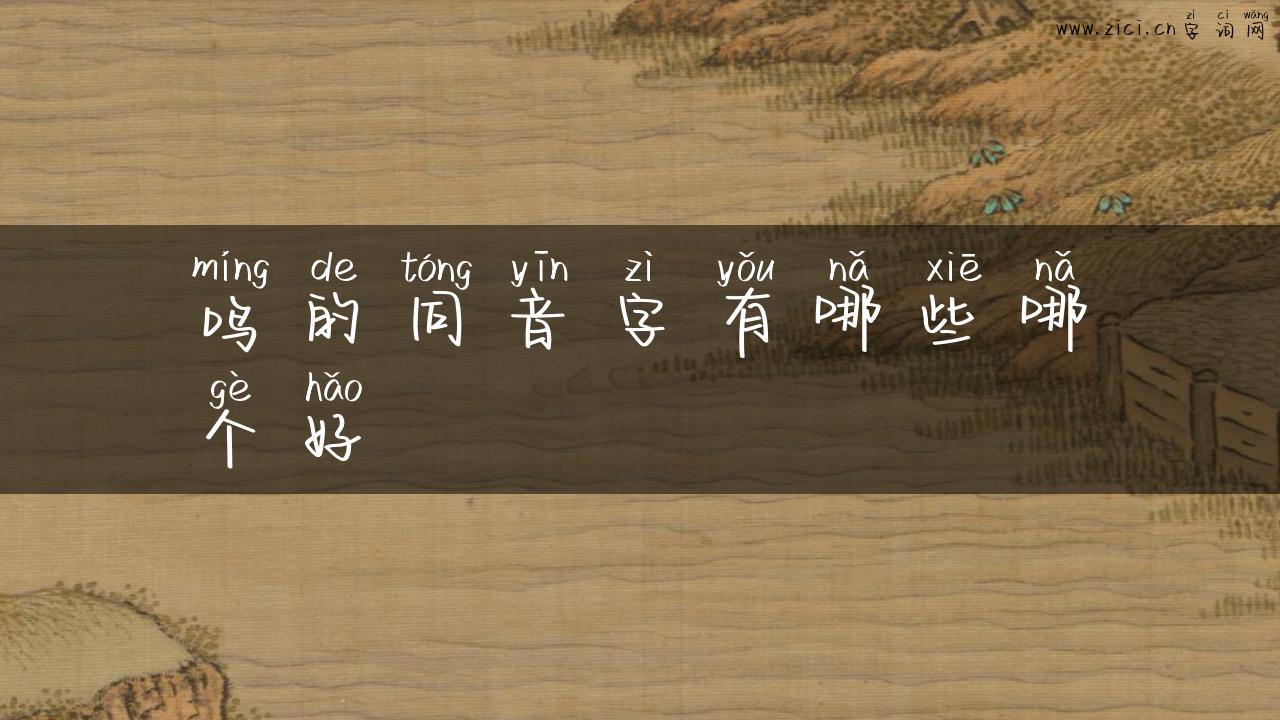 zì cí wǎng
www.zici.cn字词网
míng de tóng yīn zì yǒu nǎ xiē nǎ
鸣的同音字有哪些哪
gè hǎo
个好